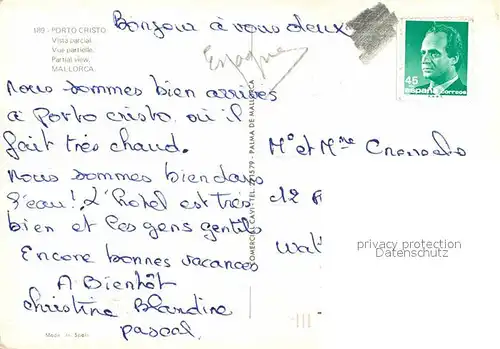 189 - PORTO CRISTO
Vista parcial.
Vue partielle.
Partial view.
MALLORCA.
Bonjour à vous deux
Espagne
45
españa correos
nous sommes bien arrivés
à Porto cristo où il
fait très chaud.
Nous sommes bien dans
l'eau! L'hotel est très
bien et les gens gentils
Encore bonnes vacances
A Bientôt
christine Blandine
pascal
COMERCIAL CAVI-TEL. - PALMA DE MALLORCA
Mr et Mme
12
Wat
privacy protection
Datenschutz
Made in Spain